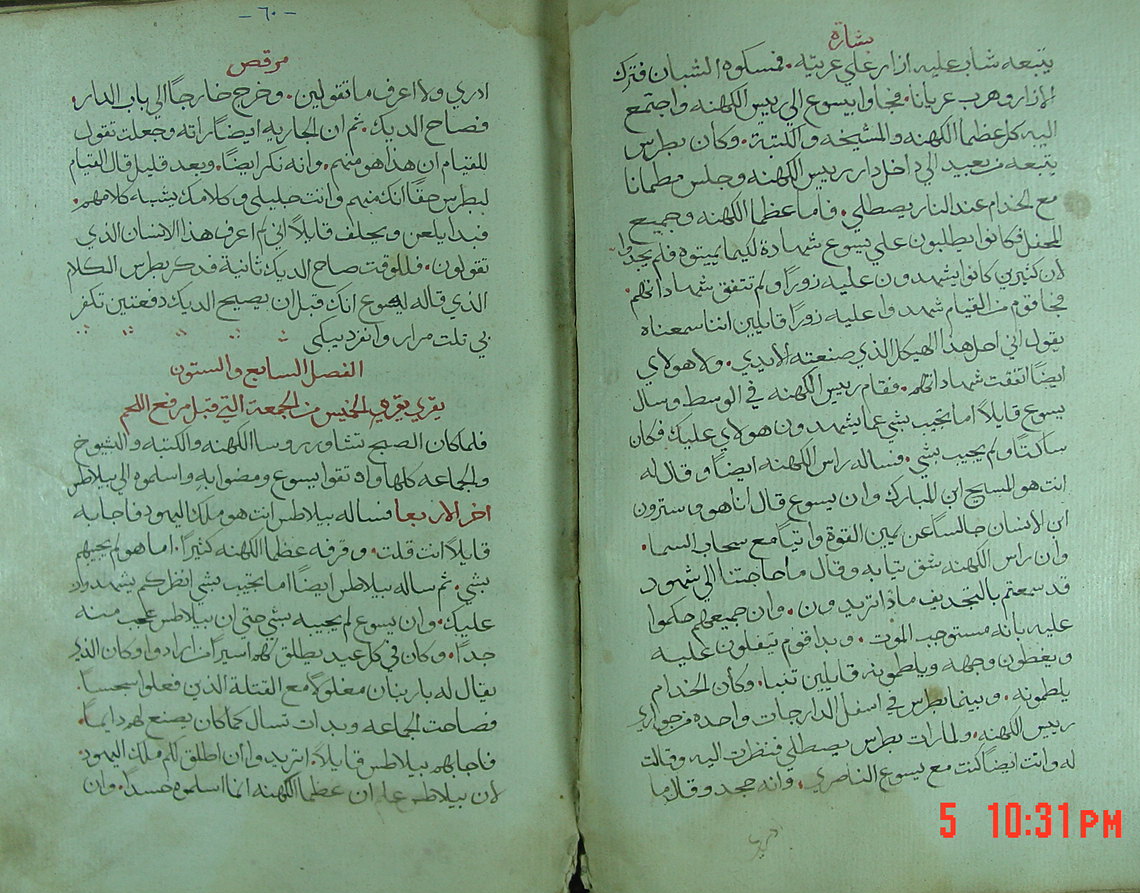 بشارة
يتبعه شاب عليه ازار علي عريته. فمسكوه الشبان فترك
الازار وهرب عريانا. فجاوا بيسوع الي رييس الكهنه واجتمع
اليه كل عظما الكهنه والمشيخه والكتبة. وكان بطرس
يتبعه من بعيد الي داخل دار رييس الكهنه وجلس مطمانا
مع الخدام عند النار يصطلي. فاما عظما الكهنه وجميع
المحفل فكانوا يطلبون علي يسوع شهادة لكيما يميتوه فلم يجدوا
لان كثيرين كانوا يشهدون عليه زورا ولم تتفق شهاداتهم.
فجا قوم من القيام شهدوا عليه زورا قايلين اننا سمعناه
يقول اني احل هذا الهيكل الذي صنعته الايدي. ولا هولاي
ايضا اتفقت شهاداتهم. فقام رييس الكهنه في الوسط وسال
يسوع قايلا اما تجيب بشي عما يشهدون هولاي عليك فكان
ساكتا ولم يجيب بشي. فساله راس الكهنه ايضا وقال له
انت هو المسيح ابن المبارك وان يسوع قال انا هو وسترون
ابن الانسان جالسا عن يمين القوة واتيا مع سحاب السما.
وان راس الكهنه شق تيابه وقال ما حاجتنا الي شهود
قد سمعتم بالتجديف ماذا تريدون. وان جميعهم حكموا
عليه بانه مستوجب الموت. وبدا قوم يتفلون عليه
ويغطون وجهه ويلطمونه قايلين تنبا. وكان الخدام
يلطمونه. وبينما بطرس في اسفل الدار جات واحده من جواري
رييس الكهنه. ولما رات بطرس يصطلي فنظرت اليه وقالت
له وانت ايضا كنت مع يسوع الناصري. وانه جحد وقال ما
- ٦٠ -
مرقص
ادري ولا اعرف ما تقولين. وخرج خارجا الي باب الدار.
فصاح الديك. ثم ان الجاريه ايضا راته وجعلت تقول
للقيام ان هذا هو منهم. وانه نكر ايضا. وبعد قليل قال القيام
لبطرس حقا انك منهم وانت جليلي وكلامك يشبه كلامهم.
فبدا يلعن ويحلف قايلا اني لم اعرف هذا الانسان الذي
تقولون. فللوقت صاح الديك ثانية فدكر بطرس الكلام
الذي قاله له يسوع انك قبل ان يصيح الديك دفعتين تكفر
بي تلت مرار وانفرد يبكي
الفصل السابع والستون
يقري يقره الخميس من الجمعة التي قبل مرفع اللحم
فلما كان الصبح تشاور روسا الكهنه والكتبه والشيوخ
والجماعه كلها واوتقوا يسوع ومضوا به واسلموه الي بيلاطس
اخر الاربعا فساله بيلاطس انت هو ملك اليهود فاجابه
قايلا انت قلت. وقرفه عظما الكهنه كثيرا. اما هو لم يجيبهم
بشي. ثم ساله بيلاطس ايضا اما تجيب بشي انظر كم يشهدون
عليك. وان يسوع لم يجيبه بشي حتي ان بيلاطس عجب منه
جدا. وكان في كل عيد يطلق لهم اسيرا من ارادوا وكان الذي
يقال له باربنان مغلولا مع القتلة الذين فعلوا سجسا.
فصاحت الجماعه وبدات تسال كما كان يصنع لهم دايما.
فاجابهم بيلاطس قايلا. اتريدوا ان اطلق لكم ملك اليهود
لان بيلاطس علم ان عظما الكهنه انما اسلموه حسدا. وان
5 10:31PM